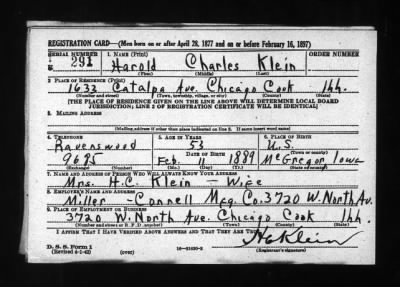 REGISTRATION CARD—(Men born on or after April 28, 1877 and on or before February 16, 1897)
SERIAL NUMBER 1. NAME (Print) ORDER NUMBER
U 291 Harold Charles Klein
(First) (Middle) (Last)
2. PLACE OF RESIDENCE (Print)
1633 Catalpa Ave. Chicago Cook Ill.
(Number and street) (Town, township, village, or city) (County) (State)
[THE PLACE OF RESIDENCE GIVEN ON THE LINE ABOVE WILL DETERMINE LOCAL BOARD
JURISDICTION; LINE 2 OF REGISTRATION CERTIFICATE WILL BE IDENTICAL]
3. MAILING ADDRESS
[Mailing address if other than place indicated on line 2. If same insert word same]
4. TELEPHONE 5. AGE IN YEARS 6. PLACE OF BIRTH
Ravenswood 53 U.S.
DATE OF BIRTH (Town or county)
9695 Feb. 11 1889 McGregor Iowa
(Exchange) (Number) (Mo.) (Day) (Yr.) (State or country)
7. NAME AND ADDRESS OF PERSON WHO WILL ALWAYS KNOW YOUR ADDRESS
Mrs. H.C. Klein - Wife
8. EMPLOYER'S NAME AND ADDRESS
Miller - Connell Mfg. Co. 3720 W. North Av.
9. PLACE OF EMPLOYMENT OR BUSINESS
3720 W. North Ave. Chicago Cook Ill.
(Number and street or R. F. D. number) (Town) (County) (State)
I AFFIRM THAT I HAVE VERIFIED ABOVE ANSWERS AND THAT THEY ARE TRUE.
D. S. S. Form 1 HCKlein
(Revised 4-1-42) (over) 16—21630-2 (Registrant's signature)